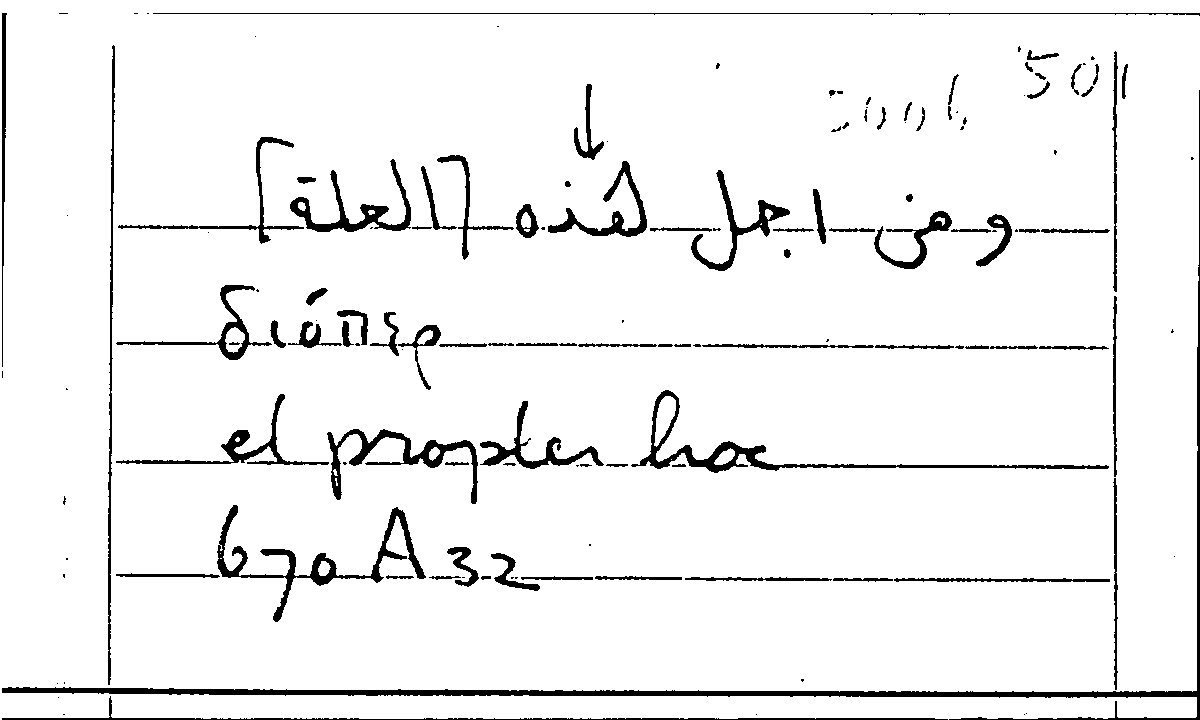 501
ومن اجل هذه [العلة]
διόπερ
et propter hoc
670 A 32